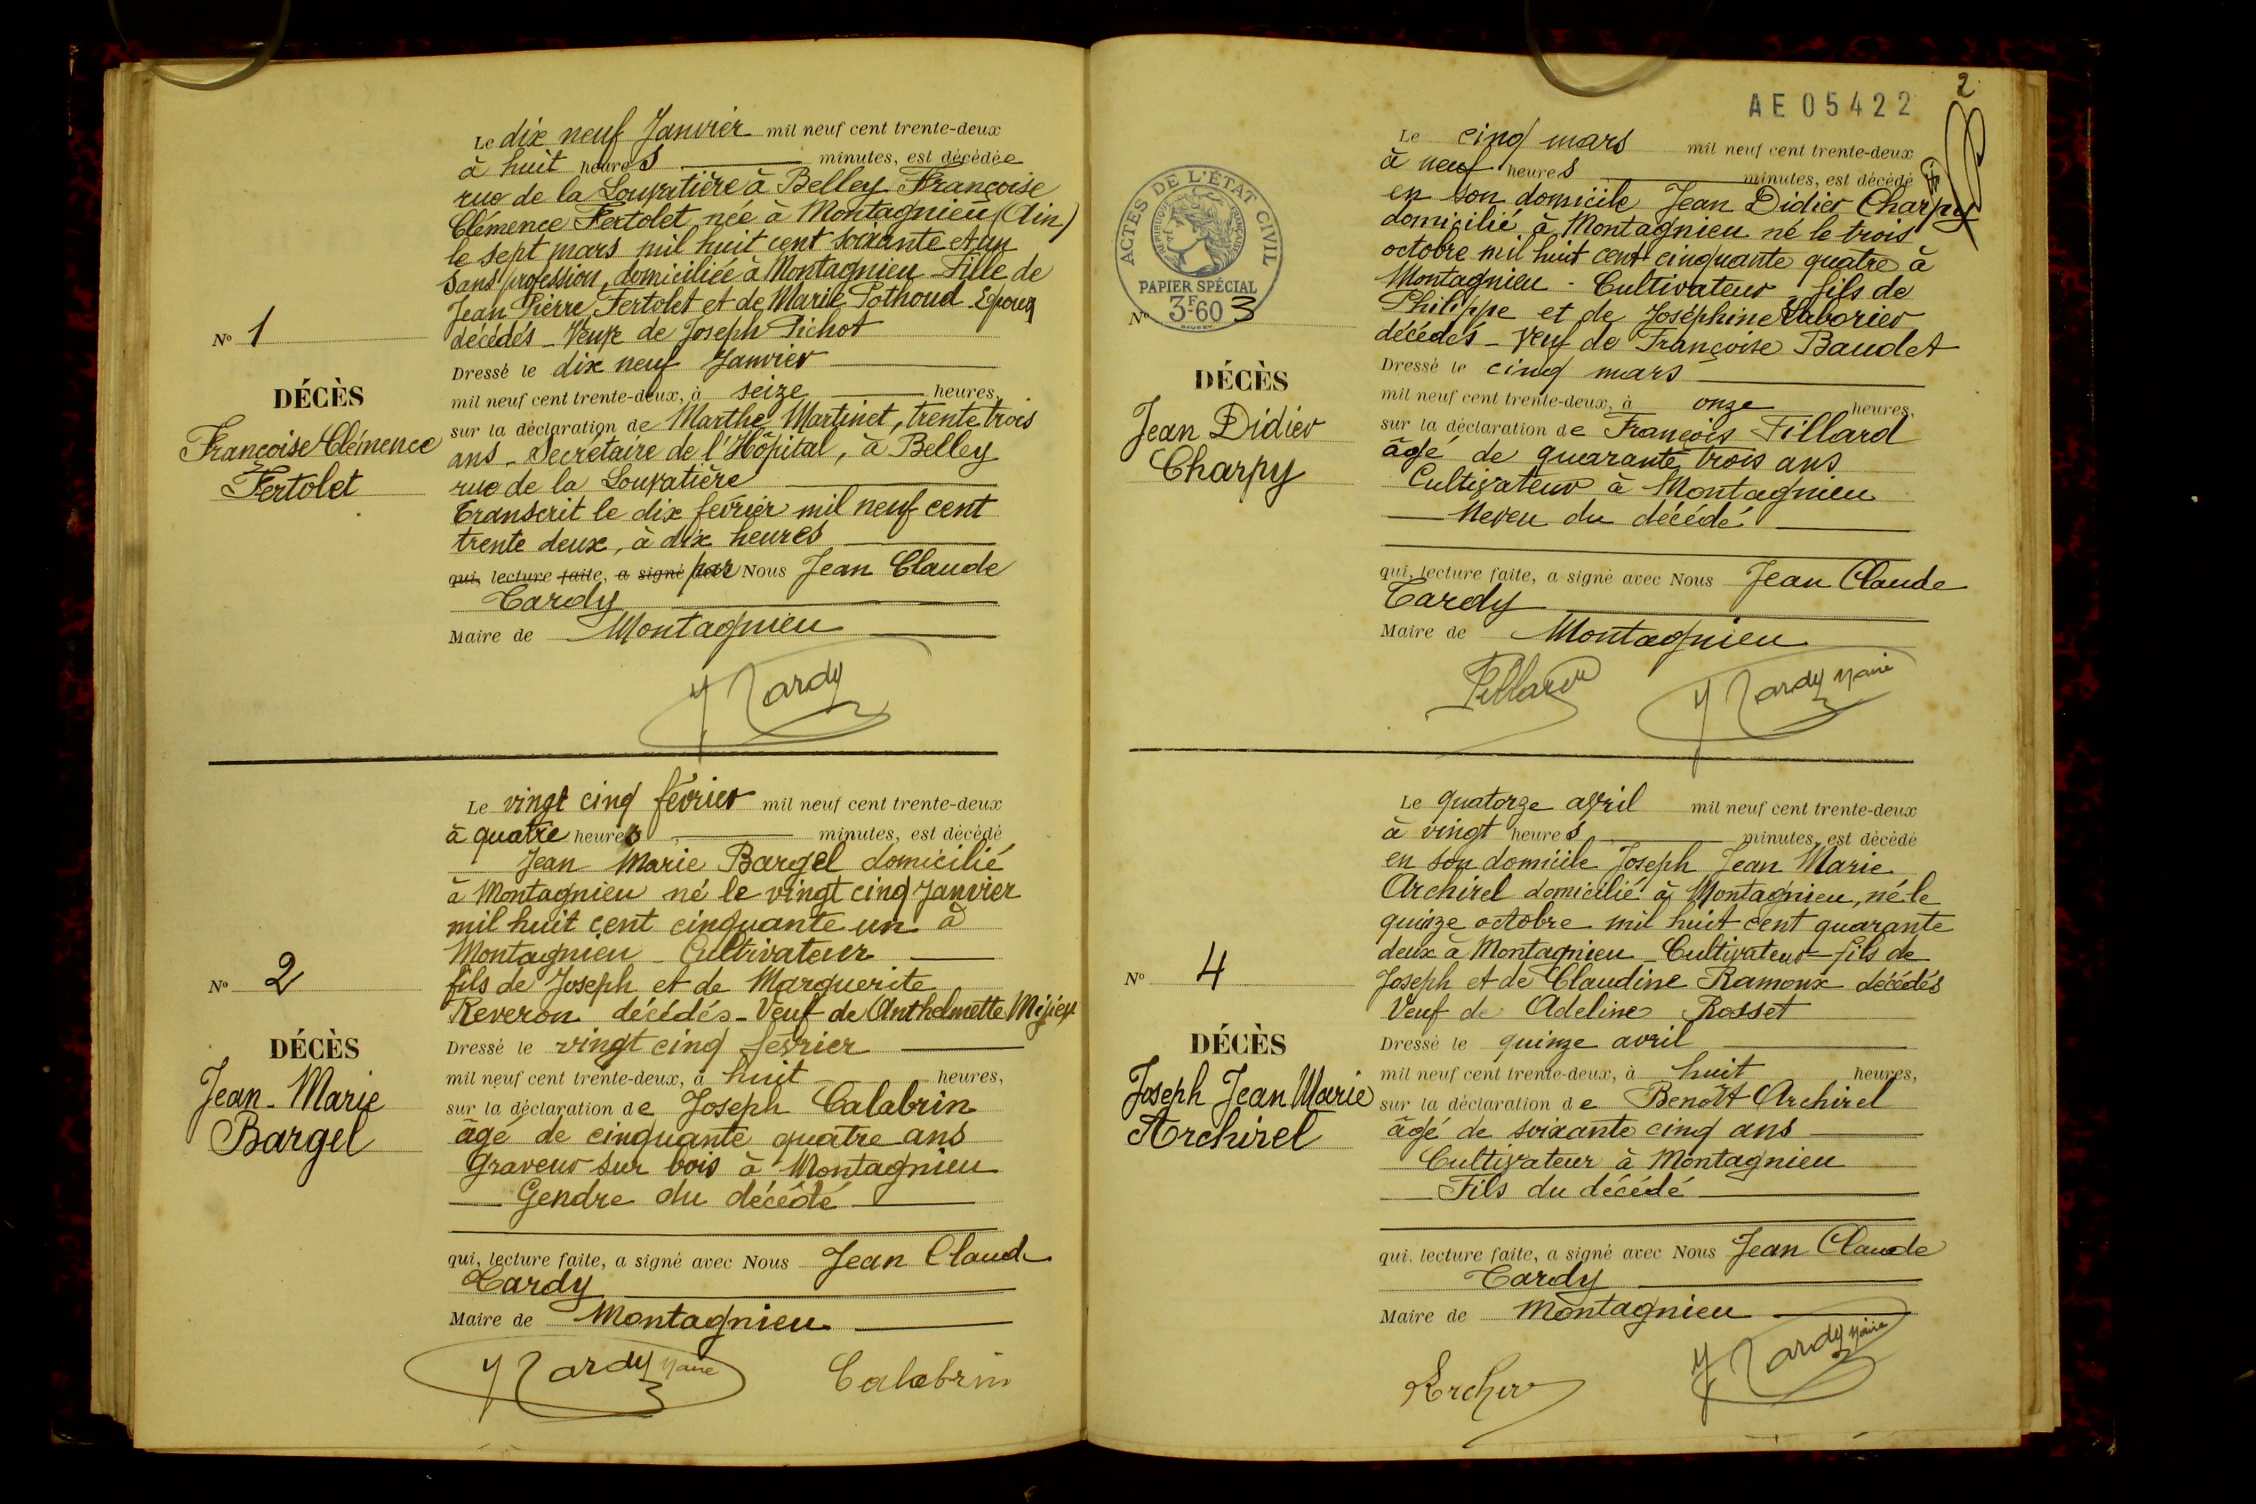 Le dix neuf Janvier mil neuf cent trente-deux
à huit heures minutes, est décédée
rue de la Louvatière à Belley Françoise
Clémence Fertolet, née à Montagnieu (Ain)
le sept mars mil huit cent soixante et un
sans profession, domiciliée à Montagnieu - Fille de
Jean Pierre Fertolet et de Marie Pothoud Epoux
décédés - Veuve de Joseph Pichot
Dressé le dix neuf Janvier
mil neuf cent trente-deux, à seize heures,
sur la déclaration de Marthe Martinet, trente trois
ans - Secrétaire de l'Hôpital, à Belley
rue de la Louvatière
Transcrit le dix février mil neuf cent
trente deux, à dix heures
qui, lecture faite, a signé par Nous Jean Claude
Tardy
Maire de Montagnieu
Tardy
N° 1
DÉCÈS
Françoise Clémence
Fertolet
Le vingt cinq février mil neuf cent trente-deux
à quatre heures minutes, est décédé
Jean Marie Bargel domicilié
à Montagnieu né le vingt cinq Janvier
mil huit cent cinquante un à
Montagnieu - Cultivateur
fils de Joseph et de Marguerite
Reveron décédés - Veuf de Anthelmette
Dressé le vingt cinq fevrier
mil neuf cent trente-deux, à huit heures,
sur la déclaration de Joseph Calabrin
âgé de cinquante quatre ans
Graveur sur bois à Montagnieu
Gendre du décédé
qui, lecture faite, a signé avec Nous Jean Claude
Tardy
Maire de Montagnieu
Tardy Maire
Calabrin
N° 2
DÉCÈS
Jean-Marie
Bargel
2
AE05422
Le cinq mars mil neuf cent trente-deux
à neuf heures minutes, est décédé
en son domicile Jean Didier Charpy
domicilié à Montagnieu né le trois
octobre mil huit cent cinquante quatre à
Montagnieu - Cultivateur - fils de
Philippe et de Joséphine
décédés - Veuf de Françoise Baudet
Dressé le cinq mars
mil neuf cent trente-deux, à onze heures,
sur la déclaration de François Fillard
âgé de quarante trois ans
Cultivateur à Montagnieu
Neveu du décédé
qui, lecture faite, a signé avec Nous Jean Claude
Tardy
Maire de Montagnieu
Fillard
Tardy Maire
ACTES DE L'ÉTAT CIVIL
RÉPUBLIQUE FRANÇAISE
PAPIER SPÉCIAL
3F60
N° 3
DÉCÈS
Jean Didier
Charpy
Le quatorze avril mil neuf cent trente-deux
à vingt heures minutes, est décédé
en son domicile Joseph Jean Marie
Archirel domicilié à Montagnieu, né le
quinze octobre mil huit cent quarante
deux à Montagnieu - Cultivateur - fils de
Joseph et de Claudine Ramoux décédés
Veuf de Adeline Rosset
Dressé le quinze avril
mil neuf cent trente-deux, à huit heures,
sur la déclaration de Benoît Archirel
âgé de soixante cinq ans
Cultivateur à Montagnieu
Fils du décédé
qui, lecture faite, a signé avec Nous Jean Claude
Tardy
Maire de Montagnieu
Tardy Maire
N° 4
DÉCÈS
Joseph Jean Marie
Archirel